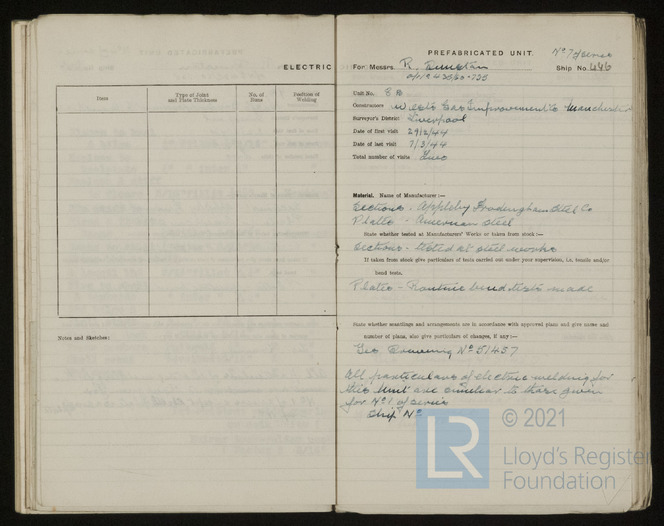 ELECTRIC
Item
Type of Joint and Plate Thickness
No. of Runs
Position of Welding
Notes and Sketches:
PREFABRICATED UNIT.
No 7 of series
For Messrs. R. Dunstan
Ship No. 446
Unit No. 8B
Constructors West's Gas Improvement Co Manchester
Surveyor's District Liverpool
Date of first visit 29/2/44
Date of last visit 7/3/44
Total number of visits Two
Material. Name of Manufacturer :—
Sections - Appleby Frodingham Steel Co
Plates - American Steel
State whether tested at Manufacturers' Works or taken from stock :—
Sections - tested at steel works
If taken from stock give particulars of tests carried out under your supervision, i.e. tensile and/or
bend tests.
Plates - Routine bend tests made
State whether scantlings and arrangements are in accordance with approved plans and give name and
number of plans, also give particulars of changes, if any :—
Yes Drawing No 51437
All particulars of electric welding for
this Unit are similar to those given
for No 1 of series
Ship No
LR
© 2021
Lloyd's Register
Foundation